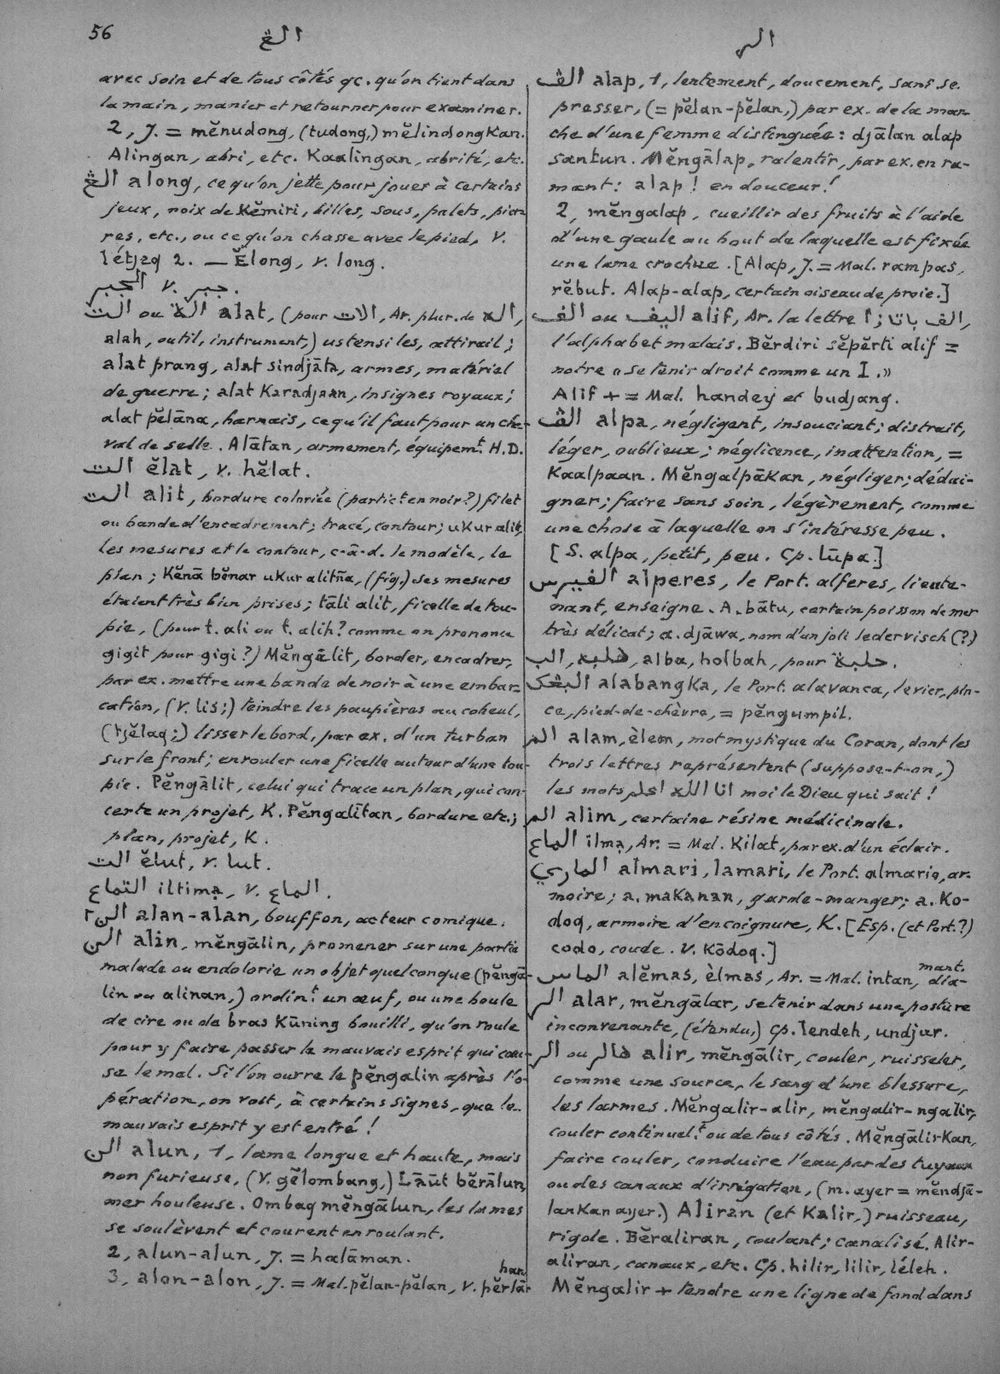 56
الڠ
الر
avec soin et de tous côtés qc. qu'on tient dans
la main, manier et retourner pour examiner.
2, J. = mĕnudong, (tudong,) mĕlindongkan.
Alingan, abri, etc. Kaalingan, abrité, etc.
الڠ along, ce qu'on jette pour jouer à certains
jeux, noix de Kĕmiri, billes, sous, palets, pier-
res, etc., ou ce qu'on chasse avec le pied, V.
létjeq 2. — Ĕlong, V. long.
الجبر V. جبر.
الت ou الة alat, (pour الات, Ar. plur. de اله,
alah, outil, instrument,) ustensiles, attirail;
alat prang, alat sindjāta, armes, matériel
de guerre; alat Karadjaan, insignes royaux;
alat pĕlāna, harnais, ce qu'il faut pour un che-
val de selle. Alātan, armement, équipemt. H.D.
الت ĕlat, V. hĕlat.
الت alit, bordure coloriée (partict en noir?) filet
ou bande d'encadrement; tracé, contour; ukur alit,
les mesures et le contour, c-à-d. le modèle, le
plan; Kĕnā bĕnar ukur alitña, (fig.) ses mesures
étaient très bien prises; tāli alit, ficelle de tou-
pie, (pour t. ali ou t. alih? comme on prononce
gigit pour gigi?) Mĕngālit, border, encadrer,
par ex. mettre une bande de noir à une embar-
cation, (V. lis;) teindre les paupières au coheul,
(tjĕlaq;) lisser le bord, par ex. d'un turban
sur le front; enrouler une ficelle autour d'une tou-
pie. Pĕngālit, celui qui trace un plan, qui con-
certe un projet, K. Pĕngalītan, bordure etc.;
plan, projet, K.
الت ĕlut, V. lut.
التماع iltima, V. الماع.
الن٢ alan-alan, bouffon, acteur comique.
الن alin, mĕngālin, promener sur une partie
malade ou endolorie un objet quelconque (pĕngā-
lin ou alinan,) ordint. un œuf, ou une boule
de cire ou de bras Kūning bouilli, qu'on roule
pour y faire passer le mauvais esprit qui cau-
se le mal. Si l'on ouvre le pĕngalin après l'o-
pération, on voit, à certains signes, que le
mauvais esprit y est entré!
الن alun, 1, lame longue et haute, mais
non furieuse, (V. gĕlombang,) Lāūt bĕrālun,
mer houleuse. Ombaq mĕngālun, les lames
se soulèvent et courent en roulant.
2, alun-alun, J. = halāman.
3, alon-alon, J. = Mal. pĕlan-pĕlan, V. pĕrlā-
han
الڤ alap, 1, lentement, doucement, sans se
presser, (= pĕlan-pĕlan,) par ex. de la mar-
che d'une femme distinguée: djālan alap
santun. Mĕngālap, ralentir, par ex. en ra-
mant: alap! en douceur!
2, mĕngalap, cueillir des fruits à l'aide
d'une gaule au bout de laquelle est fixée
une lame crochue. [Alap, J. = Mal. rampas,
rĕbut. Alap-alap, certain oiseau de proie.]
الف ou اليف alif, Ar. la lettre ا; الف باتا,
l'alphabet malais. Bĕrdiri sĕpĕrti alif =
notre « se tenir droit comme un I. »
Alif + = Mal. handey et budjang.
الڤ alpa, négligent, insouciant; distrait,
léger, oublieux; négligence, inattention, =
Kaalpaan. Mĕngalpākan, négliger; dédai-
gner; faire sans soin, légèrement, comme
une chose à laquelle on s'intéresse peu.
[S. alpa, petit, peu. Cp. lūpa.]
الفيرس alperes, le Port. alferes, lieute-
nant, enseigne. A. bātu, certain poisson de mer
très délicat; a. djāwa, nom d'un joli ledervisch (?)
الب, هلبه, alba, holbah, pour حلبة.
البڠك alabangka, le Port. alavanca, levier, pin-
ce, pied-de-chèvre, = pĕngumpil.
الم alam, èlem, mot mystique du Coran, dont les
trois lettres représentent (suppose-t-on,)
les mots انا الله اعلم moi le Dieu qui sait!
الم alim, certaine résine médicinale.
الماع ilma, Ar. = Mal. Kilat, par ex. d'un éclair.
الماري almari, lamari, le Port. almario, ar-
moire; a. makanan, garde-manger; a. Ko-
doq, armoire d'encoignure, K. [Esp. (et Port.?)
codo, coude. V. Kōdoq.]
الماس alĕmas, èlmas, Ar. = Mal. intan, dia-
mant.
الر alar, mĕngālar, se tenir dans une posture
inconvenante, (étendu,) Cp. lendeh, undjur.
الر ou هالر alir, mĕngālir, couler, ruisseler,
comme une source, le sang d'une blessure,
les larmes. Mĕngalir-alir, mĕngalir-ngalir,
couler continuelt. ou de tous côtés. Mĕngālirkan,
faire couler, conduire l'eau par des tuyaux
ou des canaux d'irrigation, (m. ayer = mĕndjā-
lankan ayer.) Aliran (et Kalir,) ruisseau,
rigole. Bĕraliran, coulant; canalisé. Alir-
aliran, canaux, etc. Cp. hilir, lilir, léleh.
Mĕngalir + tendre une ligne de fond dans